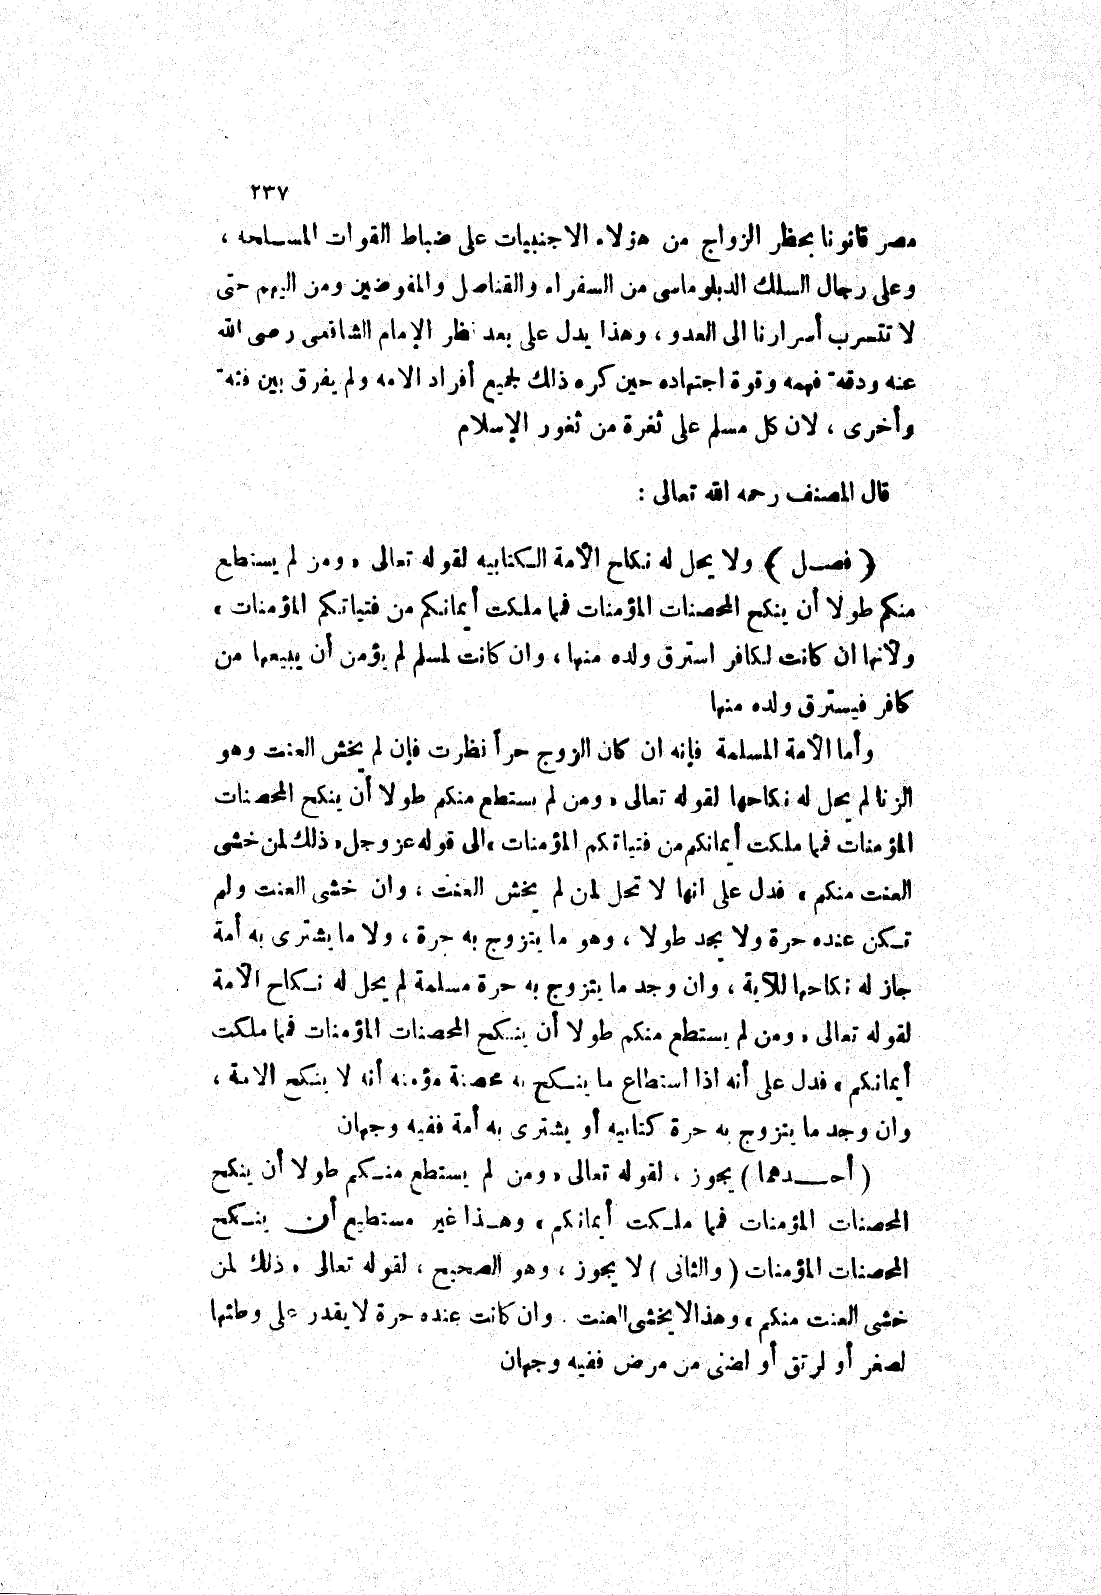 ٢٣٧
مصر قانونا بحظر الزواج من هؤلاء الاجنبيات على ضباط القوات المسلحه ،
وعلى رجال السلك الدبلوماسى من السفراء والقناصل والمفوضين ومن اليهم حتى
لا تتسرب أسرارنا الى العدو ، وهذا يدل على بعد نظر الإمام الشافعى رضى الله
عنه ودقة فهمه وقوة اجتهاده حين كره ذلك لجميع أفراد الامه ولم يفرق بين فئة
وأخرى ، لان كل مسلم على ثغرة من ثغور الإسلام
قال المصنف رحمه الله تعالى :
( فصــل ) ولا يحل له نكاح الأمة الكتابيه لقوله تعالى « ومن لم يستطع
منكم طولا أن ينكح المحصنات المؤمنات فمما ملكت أيمانكم من فتياتكم المؤمنات »
ولأنها ان كانت لكافر استرق ولده منها ، وان كانت لمسلم لم يؤمن أن يبيعها من
كافر فيسترق ولده منها
وأما الأمة المسلمة فإنه ان كان الزوج حراً نظرت فإن لم يخش العنت وهو
الزنا لم يحل له نكاحها لقوله تعالى « ومن لم يستطع منكم طولا أن ينكح المحصنات
المؤمنات فمما ملكت أيمانكم من فتياتكم المؤمنات » الى قوله عز وجل « ذلك لمن خشى
العنت منكم » فدل على انها لا تحل لمن لم يخش العنت ، وان خشى العنت ولم
تكن عنده حرة ولا يجد طولا ، وهو ما يتزوج به حرة ، ولا ما يشترى به أمة
جاز له نكاحها للآية ، وان وجد ما يتزوج به حرة مسلمة لم يحل له نكاح الأمة
لقوله تعالى « ومن لم يستطع منكم طولا أن ينكح المحصنات المؤمنات فمما ملكت
أيمانكم » فدل على أنه اذا استطاع ما ينكح به محصنة مؤمنه أنه لا ينكح الامة ،
وان وجد ما يتزوج به حرة كتابيه أو يشترى به أمة ففيه وجهان
( أحــدهما ) يجوز ، لقوله تعالى « ومن لم يستطع منكم طولا أن ينكح
المحصنات المؤمنات فمما ملكت أيمانكم » وهذا غير مستطيع أن ينكح
المحصنات المؤمنات ( والثانى ) لا يجوز ، وهو الصحيح ، لقوله تعالى « ذلك لمن
خشى العنت منكم » وهذا لا يخشى العنت . وان كانت عنده حرة لا يقدر على وطئها
لصغر أو لرتق أو اضنى من مرض ففيه وجهان